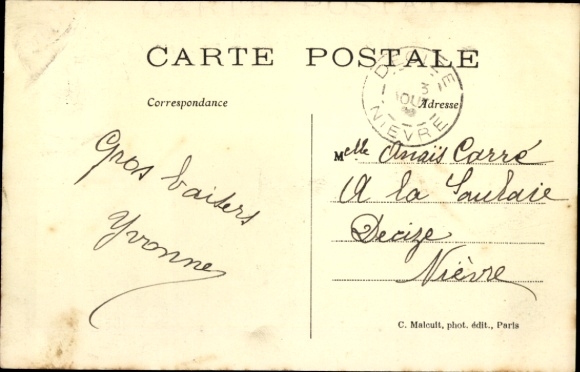 CARTE POSTALE
Correspondance
Adresse
DECIZE
3
AOUT
NIEVRE
Gros baisers
Yvonne
Melle Anaïs Carré
A la Saulaie
Decize
Nièvre
C. Malcuit, phot. édit., Paris